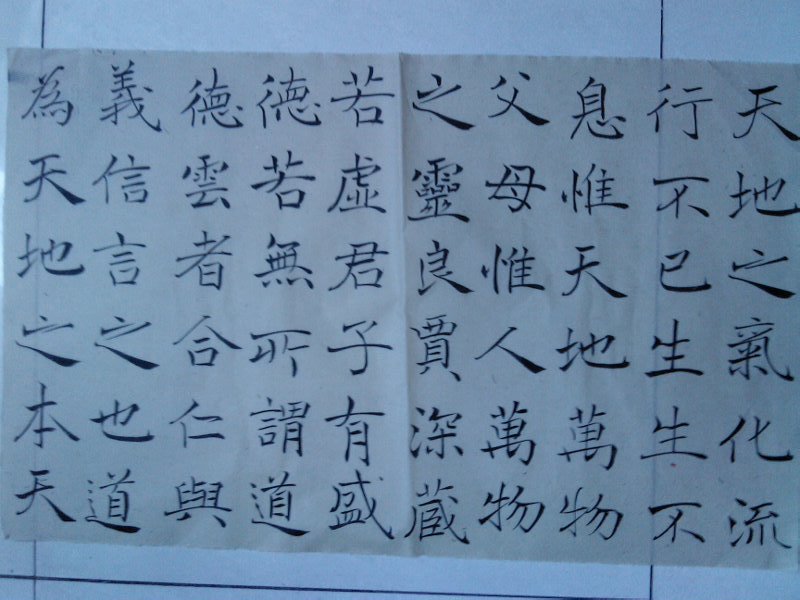 天地之氣化流
行不已生生不
息惟天地萬物
父母惟人萬物
之靈良賈深蔵
若虛君子有盛
德若無所謂道
德雲者合仁與
義信言之也道
為天地之本天